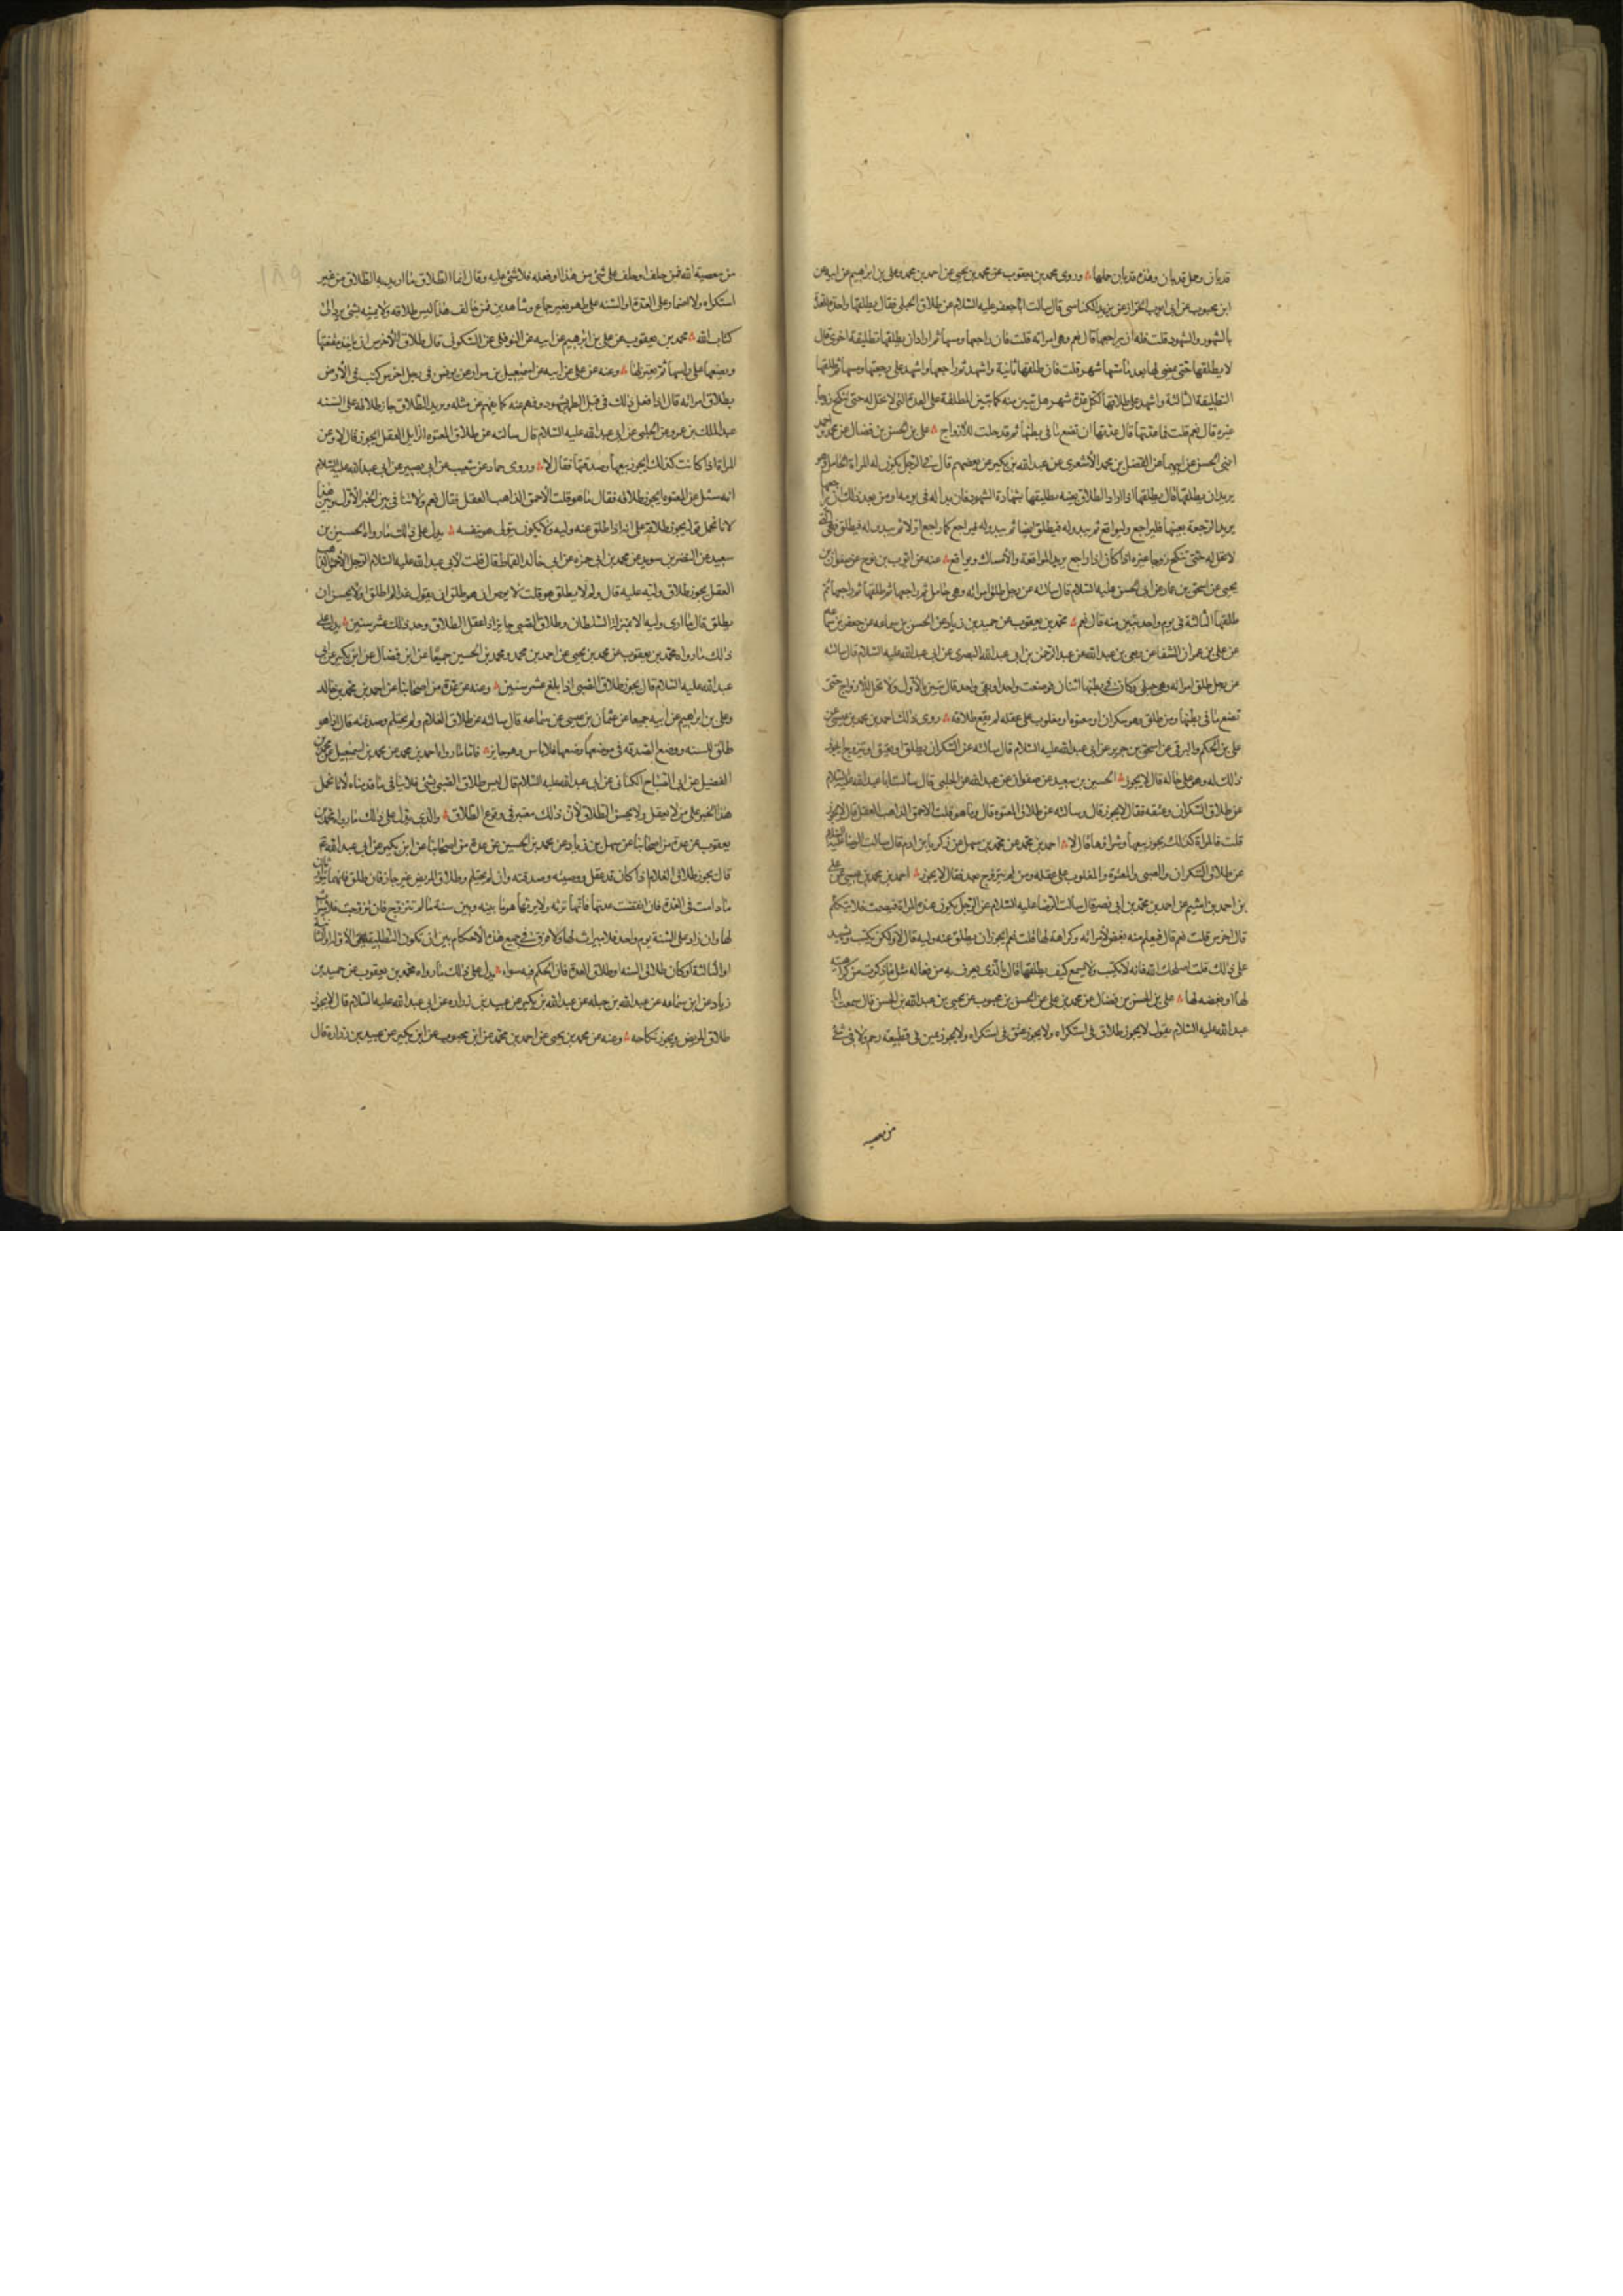 قد بان وحل قد بان وهذه قد بان حملها وروى محمد بن يعقوب عن محمد بن يحيى عن احمد بن محمد وعلى بن ابراهيم عن ابيه عن
ابن محبوب عن ابى ايوب الخزاز عن يزيد الكناسى قال سالت ابا جعفر عليه السلام عن طلاق الحبلى فقال يطلقها واحدة للعدة
بالشهور والشهود قلت فله ان يراجعها قال نعم وهى امراته قلت فان راجعها ومسها ثم اراد ان يطلقها تطليقة اخرى قال
لا يطلقها حتى يمضى لها بعد ما مسها شهر قلت فان طلقها ثانية واشهد ثم راجعها واشهد على رجعتها ومسها ثم طلقها
التطليقة الثالثة واشهد على طلاقها لكل عدة شهر هل تبين منه كما تبين المطلقة على العدة التى لا تحل له حتى تنكح زوجا
غيره قال نعم قلت فما عدتها قال عدتها ان تضع ما فى بطنها ثم قد حلت للازواج على بن الحسن بن فضال عن محمد واحمد
ابنى الحسن عن ابيهما عن الفضل بن محمد الأشعرى عن عبد الله بن بكير عن بعضهم قال فى الرجل يكون له المراة الحامل وهو
يريد ان يطلقها قال يطلقها اذا اراد الطلاق بعينه يطليقها بشهادة الشهود فان بدا له فى يومه او من بعد ذلك ان يراجعها
يريد الرجعة بعينها فليراجع وليواقع ثم يبدو له فيطلق ايضا ثم يبدو له فيراجع كما راجع اولا ثم يبدو له فيطلق فهى التى
لا تحل له حتى تنكح زوجا غيره اذا كان اذا راجع يريد المواقعة والأمساك ويواقع عنه عن ايوب بن نوح عن صفوان بن
يحيى عن اسحق بن عمار عن ابى الحسن عليه السلام قال سالته عن رجل طلق امراته وهى حامل ثم راجعها ثم طلقها ثم راجعها ثم
طلقها الثالثة فى يوم واحد تبين منه قال نعم محمد بن يعقوب عن حميد بن زياد عن الحسن بن سماعه عن جعفر بن سماعه
عن على بن عمران الشفا عن ربعى بن عبد الله عن عبد الرحمن بن ابى عبد الله البصرى عن ابى عبد الله عليه السلام قال سالته
عن رجل طلق امراته وهى حبلى وكان فى بطنها اثنان فوضعت واحدا وبقى واحد قال تبين بالأول ولا تحل للازواج حتى
تضع ما فى بطنها ومن طلق وهو سكران او معتوه او مغلوب على عقله لم يقع طلاقه روى ذلك احمد بن محمد بن عيسى عن
على بن الحكم والبرقى عن اسحق بن جرير عن ابى عبد الله عليه السلام قال سالته عن السكران يطلق او يعتق او يتزوج ايجوز
ذلك له وهو على حاله قال لا يجوز الحسين بن سعيد عن صفوان عن عبد الله عن الحلبى قال سالت ابا عبد الله عليه السلام
عن طلاق السكران وعتقه فقال لا يجوز قال وسالته عن طلاق المعتوه قال وما هو قلت الاحمق الذاهب العقل قال لا يجوز
قلت فالمراة كذلك يجوز بيعها وشراؤها قال لا احمد بن محمد عن محمد بن سهل عن زكريا بن ادم قال سالت الرضا عليه السلام
عن طلاق السكران والصبى والمعتوه والمغلوب على عقله ومن لم يتزوج بعد فقال لا يجوز احمد بن محمد بن عيسى عن على
بن احمد بن اشيم عن احمد بن محمد بن ابى نصر قال سالت الرضا عليه السلام عن الرجل يكون عنده المراة فيصمت فلا يتكلم
قال اخرس قلت نعم قال فيعلم منه بغض لأمراته وكراهة لها قلت نعم ايجوز ان يطلق عنه وليه قال لا ولكن يكتب ويشهد
على ذلك قلت اصلحك الله فانه لا يكتب ولا يسمع كيف يطلقها قال بالذى يعرف به من فعاله مثل ما ذكرت من كراهيته
لها او بغضه لها على بن الحسن بن فضال عن محمد بن على عن الحسن بن محبوب عن يحيى بن عبد الله بن الحسن قال سمعت ابا
عبد الله عليه السلام يقول لا يجوز طلاق فى استكراه ولا يجوز عتق فى استكراه ولا يجوز يمين فى قطيعة رحم ولا فى شئ
من معصيه
من معصية الله فمن حلف او حلف على شئ من هذا او فعله فلا شئ عليه وقال انما الطلاق ما اريد به الطلاق من غير
استكراه ولا اضمار على العدة او السنه على طهر بغير جماع وشاهدين فمن خالف هذا ليس طلاقه ولا يمينه بشئ يرد الى
كتاب الله محمد بن يعقوب عن على بن ابرهيم عن ابيه عن النوفلى عن السكونى قال طلاق الأخرس ان ياخذ مقنعتها
ويضعها على راسها ثم يعتزلها وعنه عن على عن ابيه عن اسمعيل بن مرار عن يونس فى رجل اخرس كتب فى الأرض
بطلاق امراته قال اذا فعل ذلك فى قبل الطهر بشهود وفهم عنه كما يفهم عن مثله ويريد الطلاق جاز طلاقه على السنه
عبد الملك بن عمرو عن الحلبى عن ابى عبد الله عليه السلام قال سالته عن طلاق المعتوه الزايل العقل ايجوز قال لا وعن
المراة اذا كانت كذلك ايجوز بيعها وصدقتها فقال لا وروى حماد عن شعيب عن ابى بصير عن ابى عبد الله عليه السلام
انه سئل عن المعتوه ايجوز طلاقه فقال ما هو قلت الأحمق الذاهب العقل فقال نعم ولا تنافى بين الخبر الأول وبين هذا
لانا نحمل قوله يجوز طلاقه على انه اذا طلق عنه وليه ولا يكون يتولى هو بنفسه يدل على ذلك ما رواه الحسين بن
سعيد عن النضر بن سويد عن محمد بن ابى حمزه عن ابى خالد القماط قال قلت لأبى عبد الله عليه السلام الرجل الأحمق الذاهب
العقل يجوز طلاق وليه عليه قال ولم لا يطلق هو قلت لا يؤمن ان هو طلق ان يقول غدا لم اطلق او لا يحسن ان
يطلق قال ما ارى وليه الا بمنزلة السلطان وطلاق الصبى جايز اذا عقل الطلاق وحد ذلك عشر سنين يدل على
ذلك ما رواه محمد بن يعقوب عن محمد بن يحيى عن احمد بن محمد ومحمد بن الحسين جميعا عن ابن فضال عن ابن بكير عن ابى
عبد الله عليه السلام قال يجوز طلاق الصبى اذا بلغ عشر سنين وعنه عن عدة من اصحابنا عن احمد بن محمد بن خالد
وعلى بن ابراهيم عن ابيه جميعا عن عثمان بن عيسى عن سماعه قال سالته عن طلاق الغلام ولم يحتلم وصدقته قال اذا هو
طلق للسنه ووضع الصدقه فى موضعها وحقها فلا باس وهو جايز فاما ما رواه احمد بن محمد عن محمد بن اسمعيل عن محمد بن
الفضيل عن ابى الصباح الكنانى عن ابى عبد الله عليه السلام قال ليس طلاق الصبى بشئ فلا ينافى ما قدمناه لأنا نحمل
هذا الخبر على من لا يعقل ولا يحسن الطلاق لأن ذلك معتبر فى وقوع الطلاق والذى يدل على ذلك ما رواه محمد بن
يعقوب عن عدة من اصحابنا عن سهل بن زياد عن محمد بن الحسين عن عدة من اصحابنا عن ابن بكير عن ابى عبد الله ع
قال يجوز طلاق الغلام اذا كان قد عقل ووصيته وصدقته وان لم يحتلم وطلاق المريض غير جايز فان طلق فانهما يتوارثان
ما دامت فى العدة فان انقضت عدتها فانها ترثه ولا يرثها هو ما بينه وبين سنة ما لم تتزوج فان تزوجت فلا ميراث
لها وان زاد على السنة يوم واحد فلا ميراث لها ولا فرق فى جميع هذه الأحكام بين ان تكون التطليقة هى الأولى او الثانية
او الثالثة او كان طلاق السنه او طلاق العدة فان الحكم فيه سواء يدل على ذلك ما رواه محمد بن يعقوب عن حميد بن
زياد عن ابن سماعه عن عبد الله بن جبله عن عبد الله بن بكير عن عبيد بن زراره عن ابى عبد الله عليه السلام قال لا يجوز
طلاق المريض ويجوز نكاحه وعنه عن محمد بن يحيى عن احمد بن محمد عن ابن محبوب عن ابن بكير عن عبيد بن زرارة قال